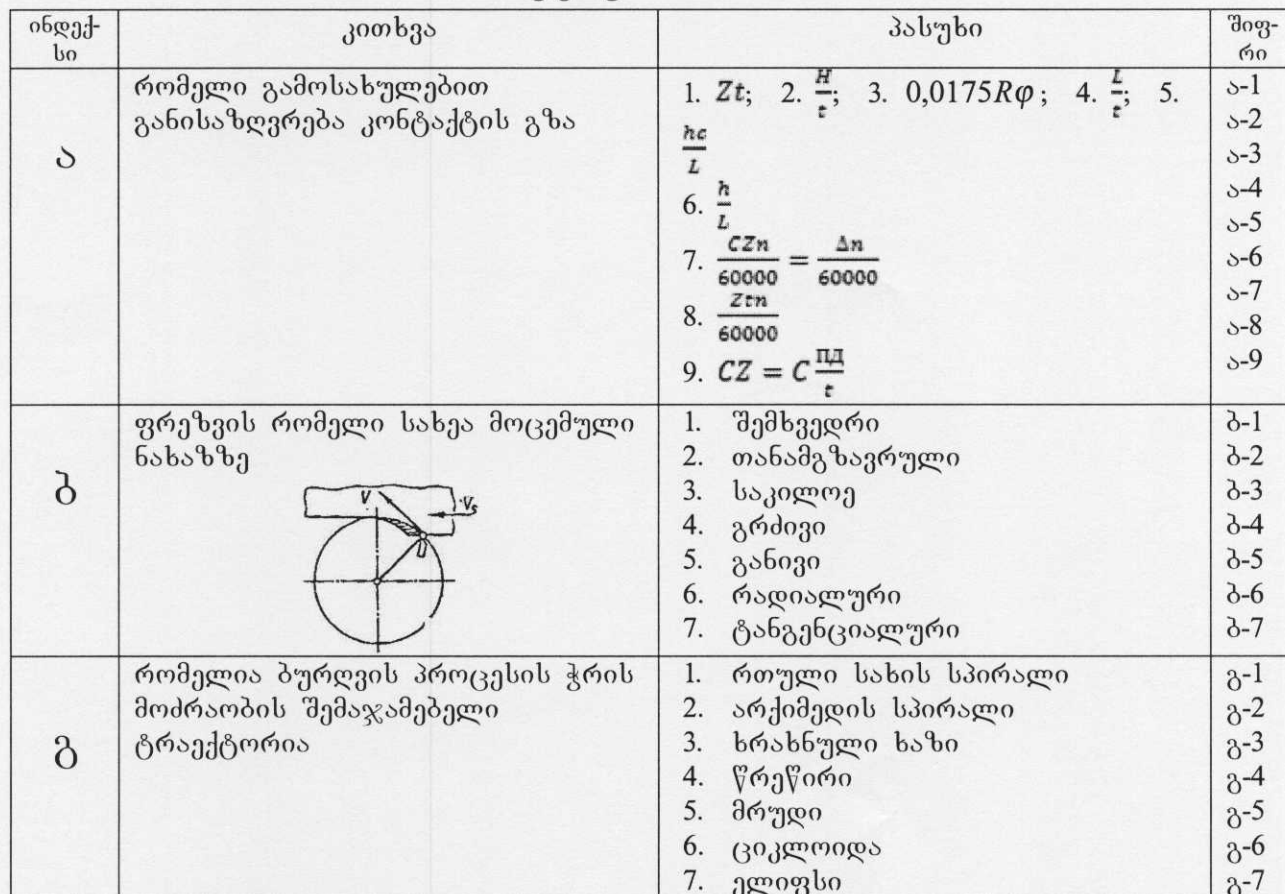 ინდექ-
სი
კითხვა
პასუხი
შიფ-
რი
ა
რომელი გამოსახულებით
განისაზღვრება კონტაქტის გზა
1. Zt; 2. H/t; 3. 0,0175Rφ; 4. L/t; 5.
hc/L
6. h/L
7. CZn/60000 = Δn/60000
8. Ztn/60000
9. CZ = C ПД/t
ა-1
ა-2
ა-3
ა-4
ა-5
ა-6
ა-7
ა-8
ა-9
ბ
ფრეზვის რომელი სახეა მოცემული
ნახაზზე
V
Vs
1. შემხვედრი
2. თანამგზავრული
3. საკილოე
4. გრძივი
5. განივი
6. რადიალური
7. ტანგენციალური
ბ-1
ბ-2
ბ-3
ბ-4
ბ-5
ბ-6
ბ-7
გ
რომელია ბურღვის პროცესის ჭრის
მოძრაობის შემაჯამებელი
ტრაექტორია
1. რთული სახის სპირალი
2. არქიმედის სპირალი
3. ხრახნული ხაზი
4. წრეწირი
5. მრუდი
6. ციკლოიდა
7. ელიფსი
გ-1
გ-2
გ-3
გ-4
გ-5
გ-6
გ-7